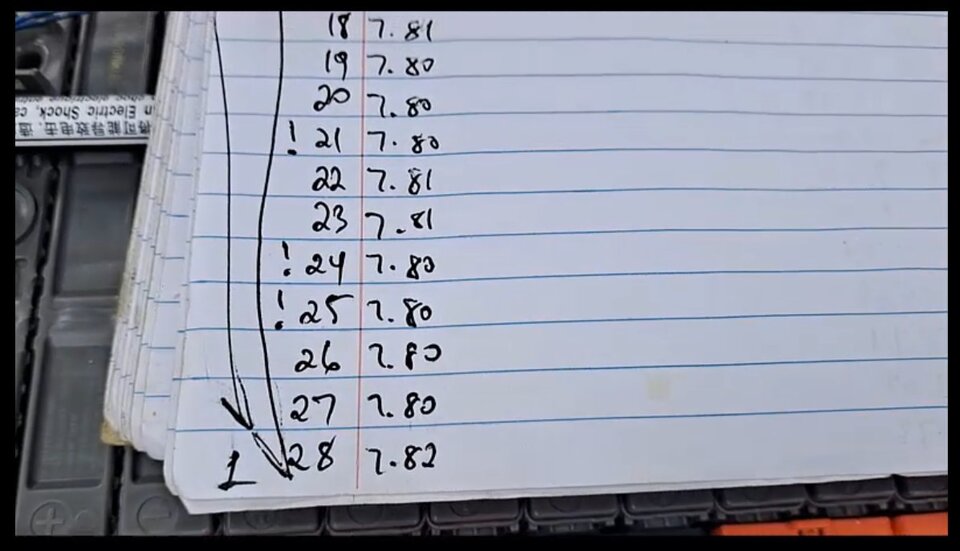 18 7.81
19 7.80
20 7.80
! 21 7.80
22 7.81
23 7.81
! 24 7.80
! 25 7.80
26 7.80
27 7.80
1 28 7.82
n Electric Shock, ca
将可能导致电击.